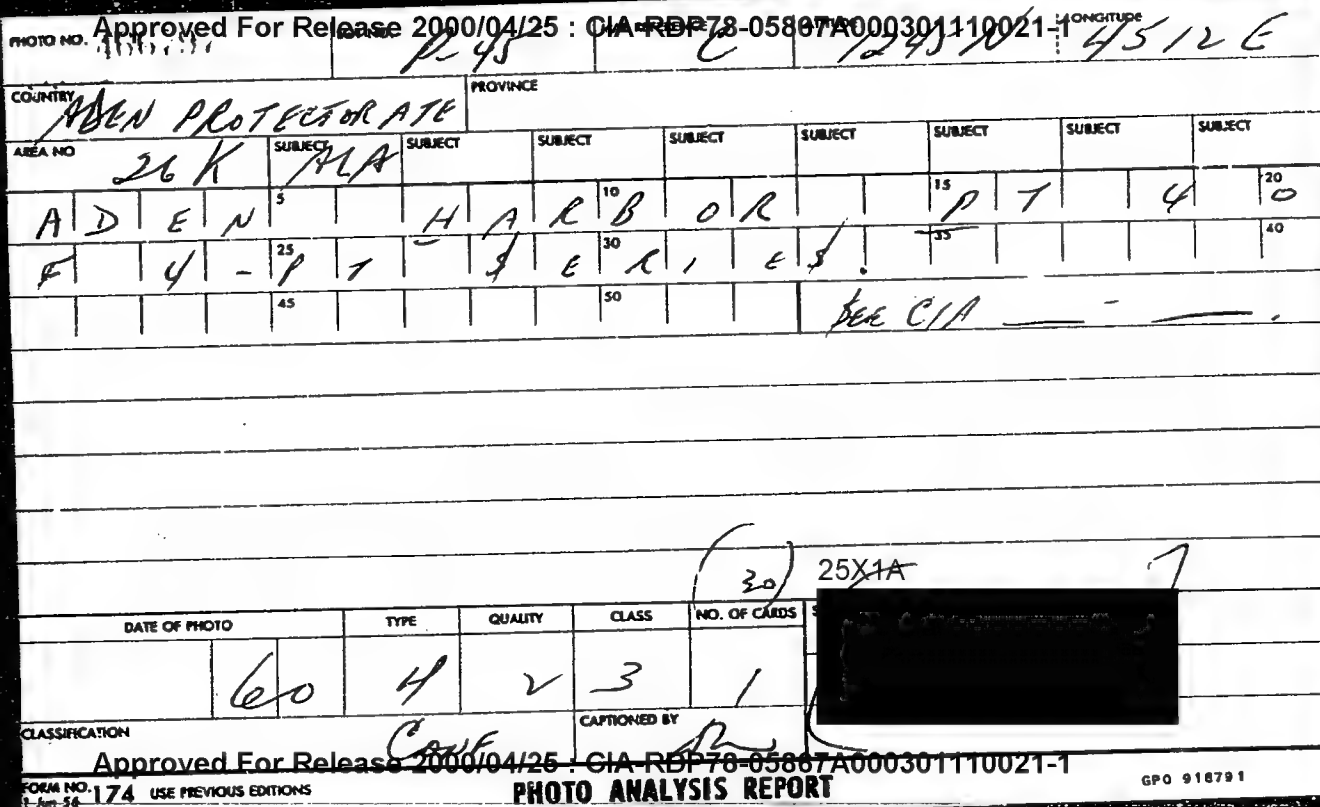 Approved For Release 2000/04/25 : CIA-RDP78-05867A000301110021-1
PHOTO NO. P-45 C 1245 N LONGITUDE 4512 E
COUNTRY ADEN PROTECTORATE PROVINCE
AREA NO 26 K SUBJECT ALA SUBJECT SUBJECT SUBJECT SUBJECT SUBJECT SUBJECT SUBJECT
A D E N 5 H A R 10 B O R 15 P T 4 20 O
F 4 - 25 P T $ E 30 R I E $ . 35 40
45 50 SEE CIA — - — .
(30) 25X1A
DATE OF PHOTO TYPE QUALITY CLASS NO. OF CARDS
60 4 2 3 1
CLASSIFICATION CONF CAPTIONED BY
Approved For Release 2000/04/25 : CIA-RDP78-05867A000301110021-1
FORM NO. 174 USE PREVIOUS EDITIONS PHOTO ANALYSIS REPORT GPO 918791
1 Jun 56